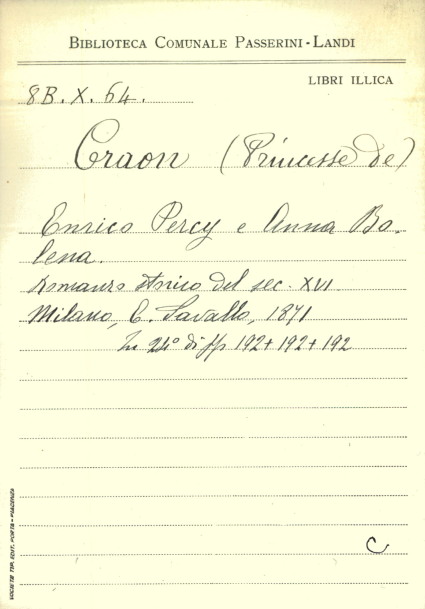 BIBLIOTECA COMUNALE PASSERINI-LANDI
LIBRI ILLICA
8B.X.64.
Craon (Princesse de)
Enrico Percy e Anna Bo-
lena.
Romanzo storico del sec. XVI
Milano, E. Savallo, 1871
In 24° di pp 192+192+192
C
SOCIETÀ TIP. EDIT. PORTA - PIACENZA